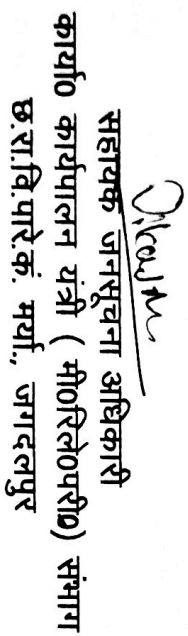 सहायक जनसूचना अधिकारी
कार्या0 कार्यपालन यंत्री ( मी0रिले0परी0) संभाग
छ.रा.वि.पारे.कं. मर्या., जगदलपुर